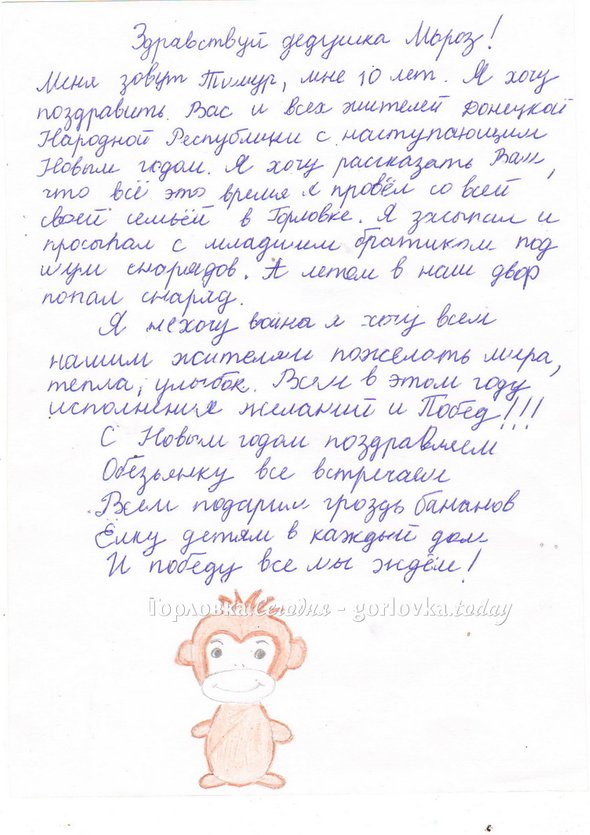 Здравствуй дедушка Мороз!
Меня зовут Тимур, мне 10 лет. Я хочу
поздравить Вас и всех жителей Донецкой
Народной Республики с наступающим
Новым годом. Я хочу рассказать Вам,
что всё это время я провёл со всей
своей семьёй в Горловке. Я засыпал и
просыпал с младшим братиком под
шум снарядов. А летом в наш двор
попал снаряд.
Я нехочу война я хочу всем
нашим жителям пожелать мира,
тепла, улыбок. Всем в этом году
исполнения желаний и Побед!!!
С Новым годом поздравляем
Обезьянку все встречаем
Всем подарим гроздь бананов
Ёлку детям в каждый дом
И победу все мы ждём!
Горловка.сегодня - gorlovka.today